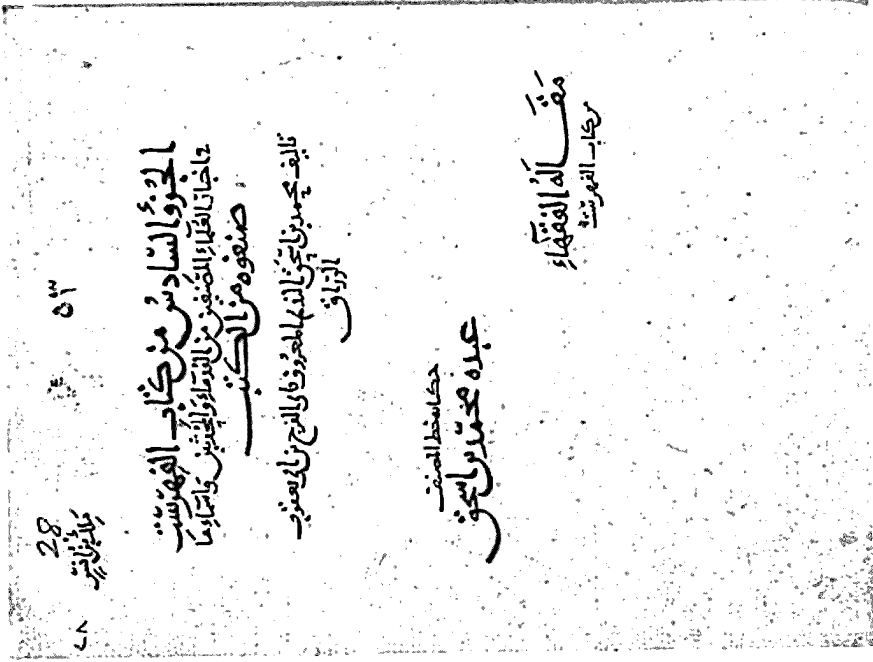 28
مالك بن انس
٢٨
٥٣
الجزؤ السادس من كتاب الفهرست
في اخبار العلماء المصنفين من القدماء والمحدثين واسماء ما
صنفوه من الكتب
تاليف محمد بن اسحق النديم المعروف بابي الفرج بن ابي يعقوب
الوراق
حكاية خط المصنف
عبده محمد بن اسحق
مقالة الفقهاء
من كتاب الفهرست